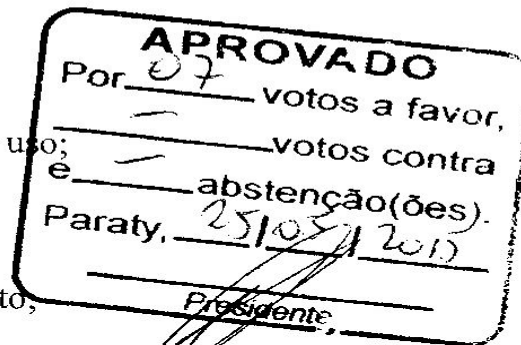 APROVADO
Por 07 votos a favor,
— votos contra
uso;
e — abstenção(ões).
Paraty, 25/05/
to,
Presidente